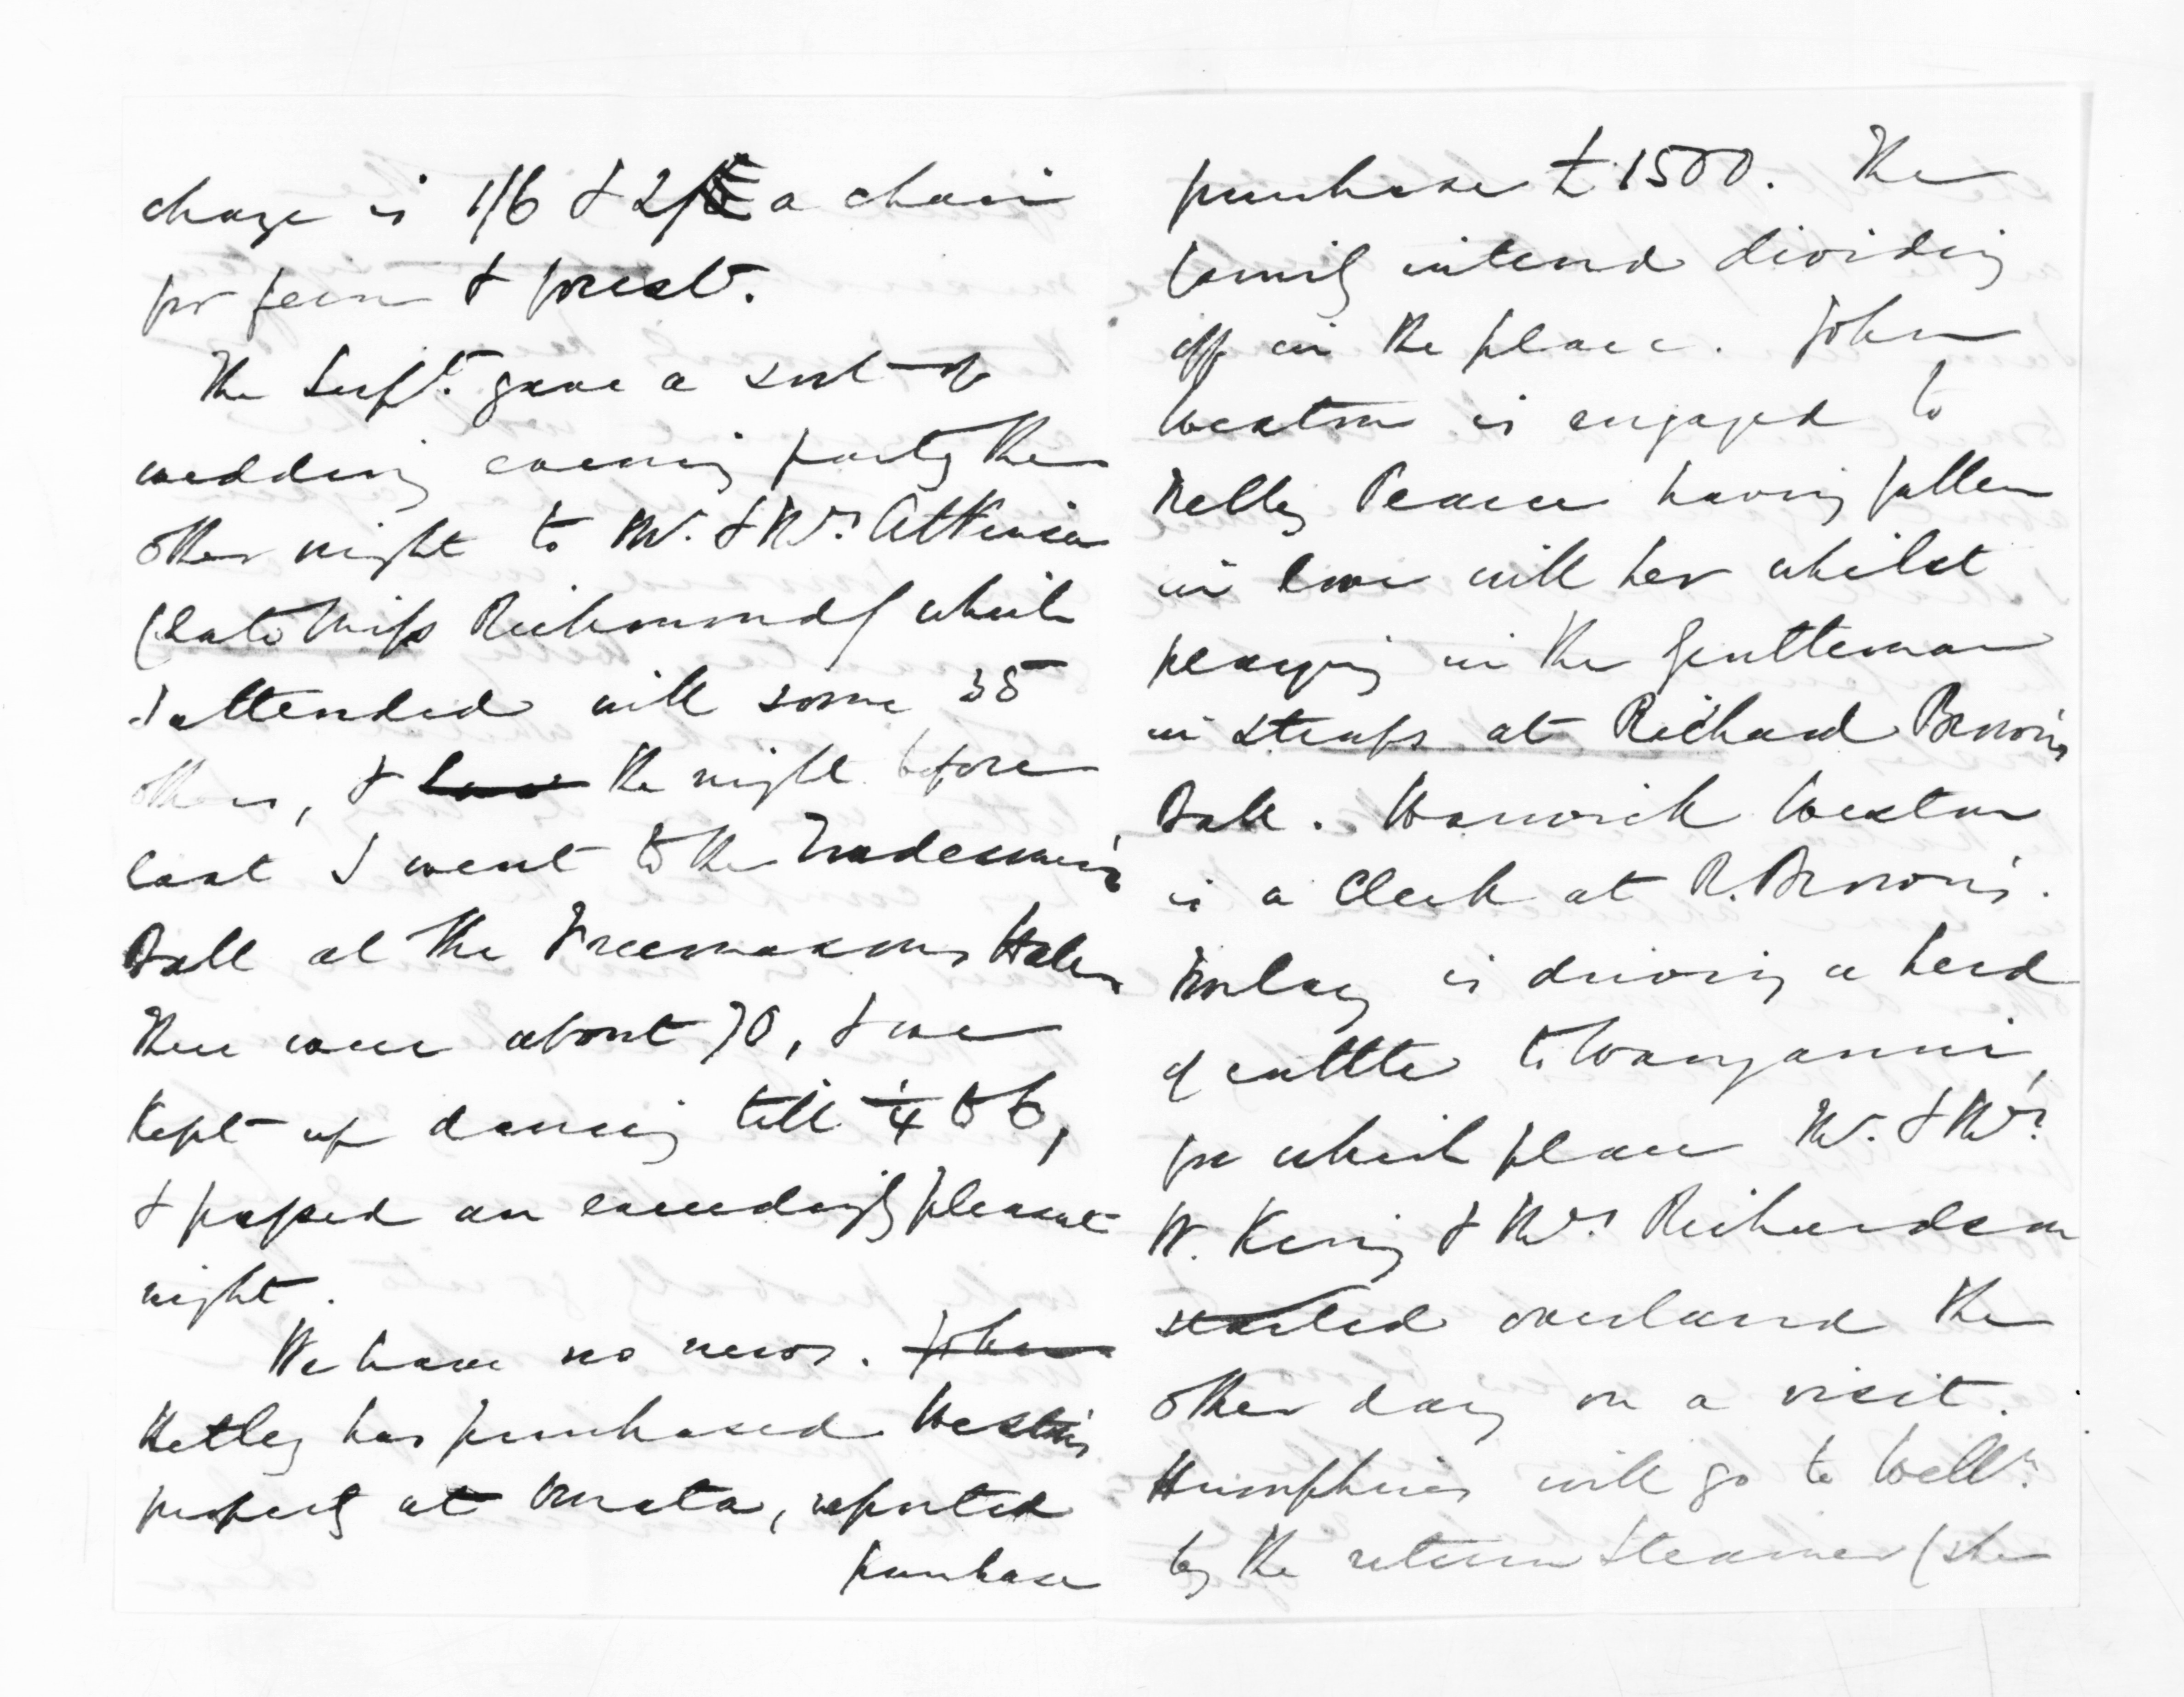 charge is 1/6 & 2/ a chain
for fern & forest.
The Supt. gave a sort of
wedding evening party the
other night to Mr. & Mrs. Atkinson
(late Miss Richmond) which
I attended with some 35
others, & the night before
last I went to the Tradesmen's
Ball at the Freemasons Hotel
There were about 70, & we
kept up dancing till ¼ to 6,
& passed an exceedingly pleasant
night.
We have no news. John
Netley has purchased Weston's
property at Omata, reported
purchase
purchase £1500. The
family intend dividing
off in the place. John
Weston is engaged to
Nelly Pearce having fallen
in love with her whilst
playing in the Gentleman
in straps at Richard Brown's
Ball. Warwick Weston
is a Clerk at R. Brown's.
is driving a herd
of cattle to Wanganui,
for which place Mr. & Mrs.
W. King & Mrs. Richardson
started overland the
other day on a visit.
Humphries will go to Welln.
by the return Steamer (she